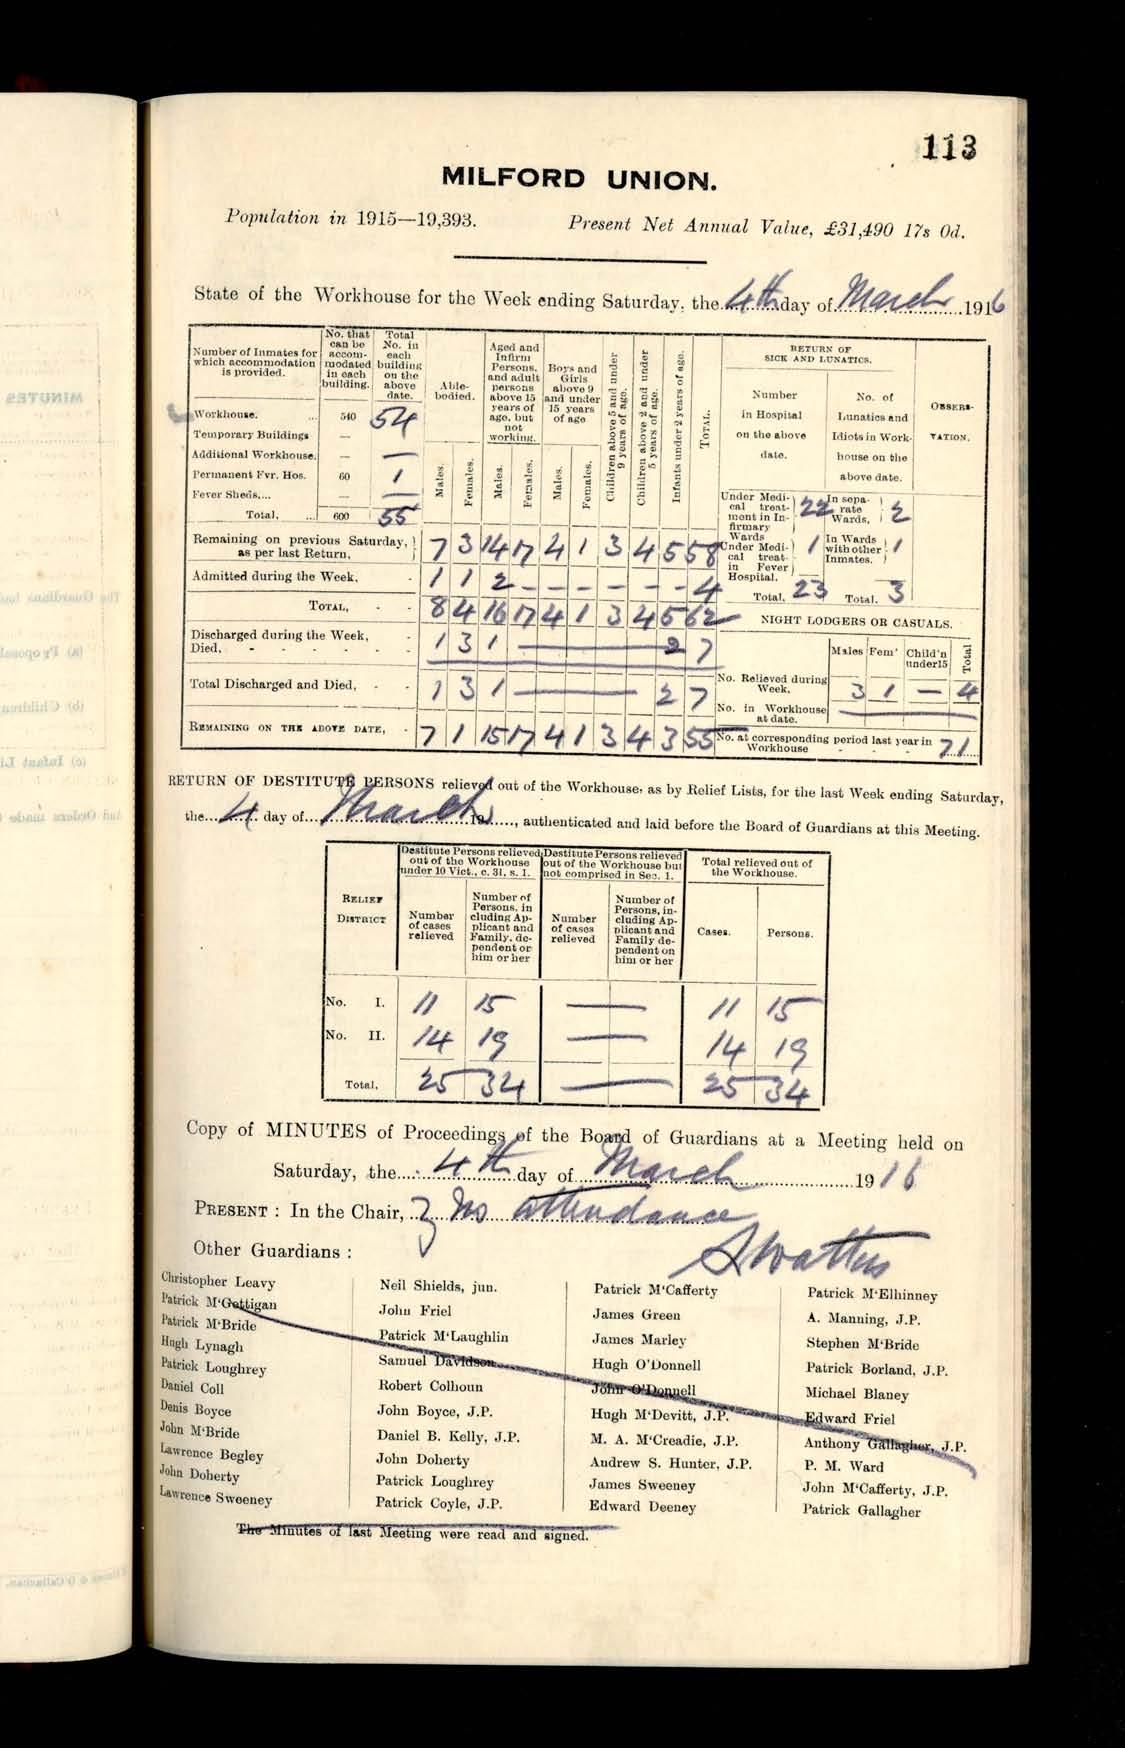 113
MILFORD UNION.
Population in 1915—19,393. Present Net Annual Value, £31,490 17s 0d.
State of the Workhouse for the Week ending Saturday, the 4th day of March 1916
Number of Inmates for which accommodation is provided. | No. that can be accommodated in each building. | Total No. in each building on the above date. | Able-bodied. | Aged and Infirm Persons, and adult persons above 15 years of age, but not working. | Boys and Girls above 9 and under 15 years of age | Children above 5 and under 9 years of age. | Children above 2 and under 5 years of age. | Infants under 2 years of age. | TOTAL.
Males. Females. Males. Females. Males. Females.
Workhouse. ... 540 54
Temporary Buildings —
Additional Workhouse. — —
Permanent Fvr. Hos. 60 1
Fever Sheds.... — —
Total, ... 600 55
Remaining on previous Saturday, as per last Return, 7 3 14 17 4 1 3 4 5 58
Admitted during the Week, - 1 1 2 – – – – – – 4
TOTAL, - - 8 4 16 17 4 1 3 4 5 62
Discharged during the Week, - 1 3 1 — 2 7
Died, - - - - - -
Total Discharged and Died, - - 1 3 1 — 2 7
REMAINING ON THE ABOVE DATE, - 7 1 15 17 4 1 3 4 3 55
RETURN OF SICK AND LUNATICS.
Number in Hospital on the above date.
No. of Lunatics and Idiots in Workhouse on the above date.
OBSERVATION.
Under Medical treatment in Infirmary Wards 22
In separate Wards, 2
Under Medical treat- in Fever Hospital. 1
In Wards with other Inmates. 1
Total, 23 Total. 3
NIGHT LODGERS OR CASUALS.
Males Fem' Child'n under15 Total
No. Relieved during Week, 3 1 — 4
No. in Workhouse at date. —
No. at corresponding period last year in Workhouse - - - 71
RETURN OF DESTITUTE PERSONS relieved out of the Workhouse, as by Relief Lists, for the last Week ending Saturday,
the 4 day of March 19 , authenticated and laid before the Board of Guardians at this Meeting.
RELIEF DISTRICT
Destitute Persons relieved out of the Workhouse under 10 Vict., c. 31, s. 1.
Destitute Persons relieved out of the Workhouse but not comprised in Sec. 1.
Total relieved out of the Workhouse.
Number of cases relieved
Number of Persons, in cluding Applicant and Family, dependent or him or her
Number of cases relieved
Number of Persons, including Applicant and Family dependent on him or her
Cases. Persons.
No. I. 11 15 — 11 15
No. II. 14 19 — 14 19
Total, 25 34 — 25 34
Copy of MINUTES of Proceedings of the Board of Guardians at a Meeting held on
Saturday, the 4th day of March 1916
PRESENT : In the Chair, No attendance
Other Guardians :
Christopher Leavy
Patrick M'Gettigan
Patrick M'Bride
Hugh Lynagh
Patrick Loughrey
Daniel Coll
Denis Boyce
John M'Bride
Lawrence Begley
John Doherty
Lawrence Sweeney
Neil Shields, jun.
John Friel
Patrick M'Laughlin
Samuel Davidson
Robert Colhoun
John Boyce, J.P.
Daniel B. Kelly, J.P.
John Doherty
Patrick Loughrey
Patrick Coyle, J.P.
Patrick M'Cafferty
James Green
James Marley
Hugh O'Donnell
John O'Donnell
Hugh M'Devitt, J.P.
M. A. M'Creadie, J.P.
Andrew S. Hunter, J.P.
James Sweeney
Edward Deeney
Patrick M'Elhinney
A. Manning, J.P.
Stephen M'Bride
Patrick Borland, J.P.
Michael Blaney
Edward Friel
Anthony Gallagher, J.P.
P. M. Ward
John M'Cafferty, J.P.
Patrick Gallagher
The Minutes of last Meeting were read and signed.